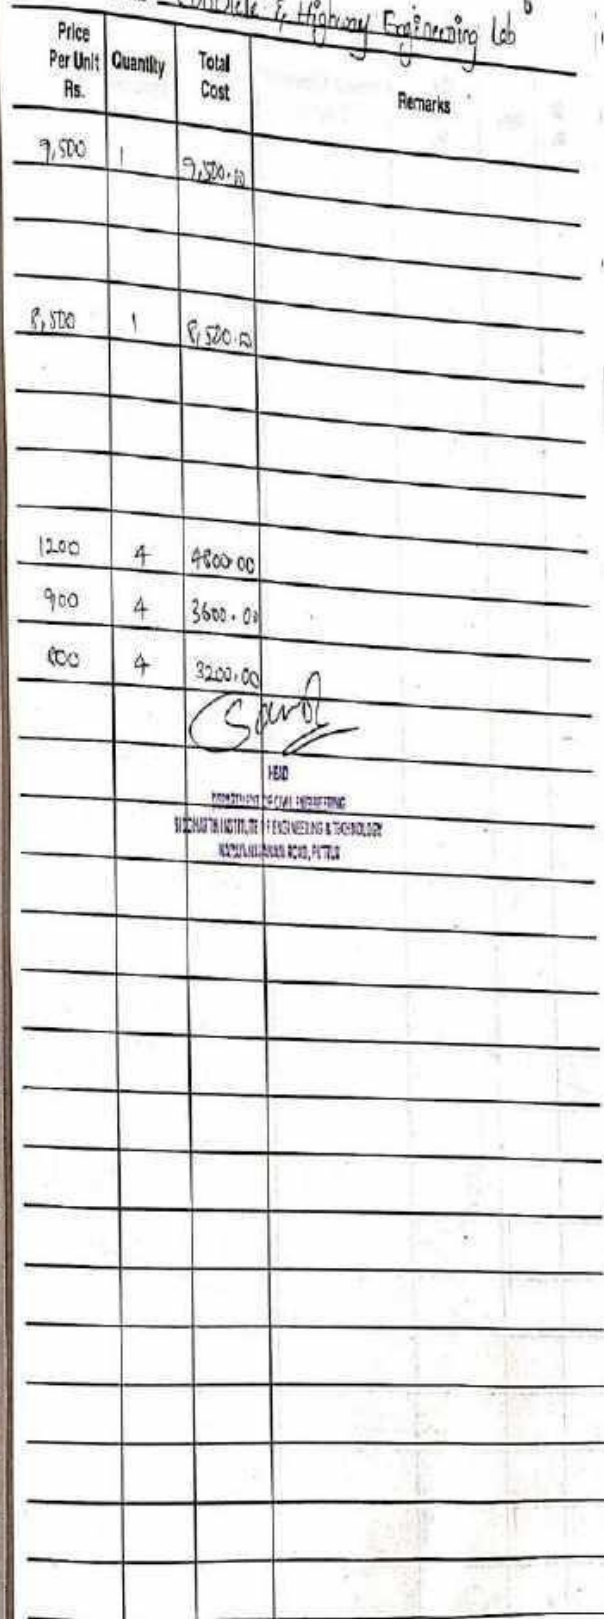 Concrete & Highway Engineering Lab
Price Per Unit Rs. Quantity Total Cost Remarks
9,500 1 9,500.00
8,500 1 8,500.00
1200 4 4800.00
900 4 3600.00
800 4 3200.00
HEAD
DEPARTMENT OF CIVIL ENGINEERING
SIDDHARTH INSTITUTE OF ENGINEERING & TECHNOLOGY
ROAD, PUTTUR